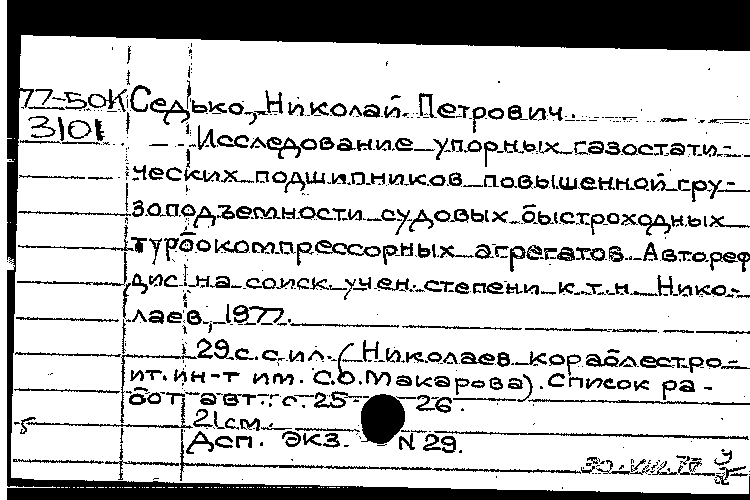 77-50К Седько, Николай Петрович.
3101
Исследование упорных газостати-
ческих подшипников повышенной гру-
зоподъемности судовых быстроходных
турбокомпрессорных агрегатов. Автореф
дис на соиск. учен. степени к.т.н. Нико-
лаев, 1977.
29 с. с ил. (Николаев кораблестро-
ит. ин-т им. С.О. Макарова). Список ра-
бот авт.: с. 25-26.
21см.
Дсп. Экз. N 29.
30.VIII.77